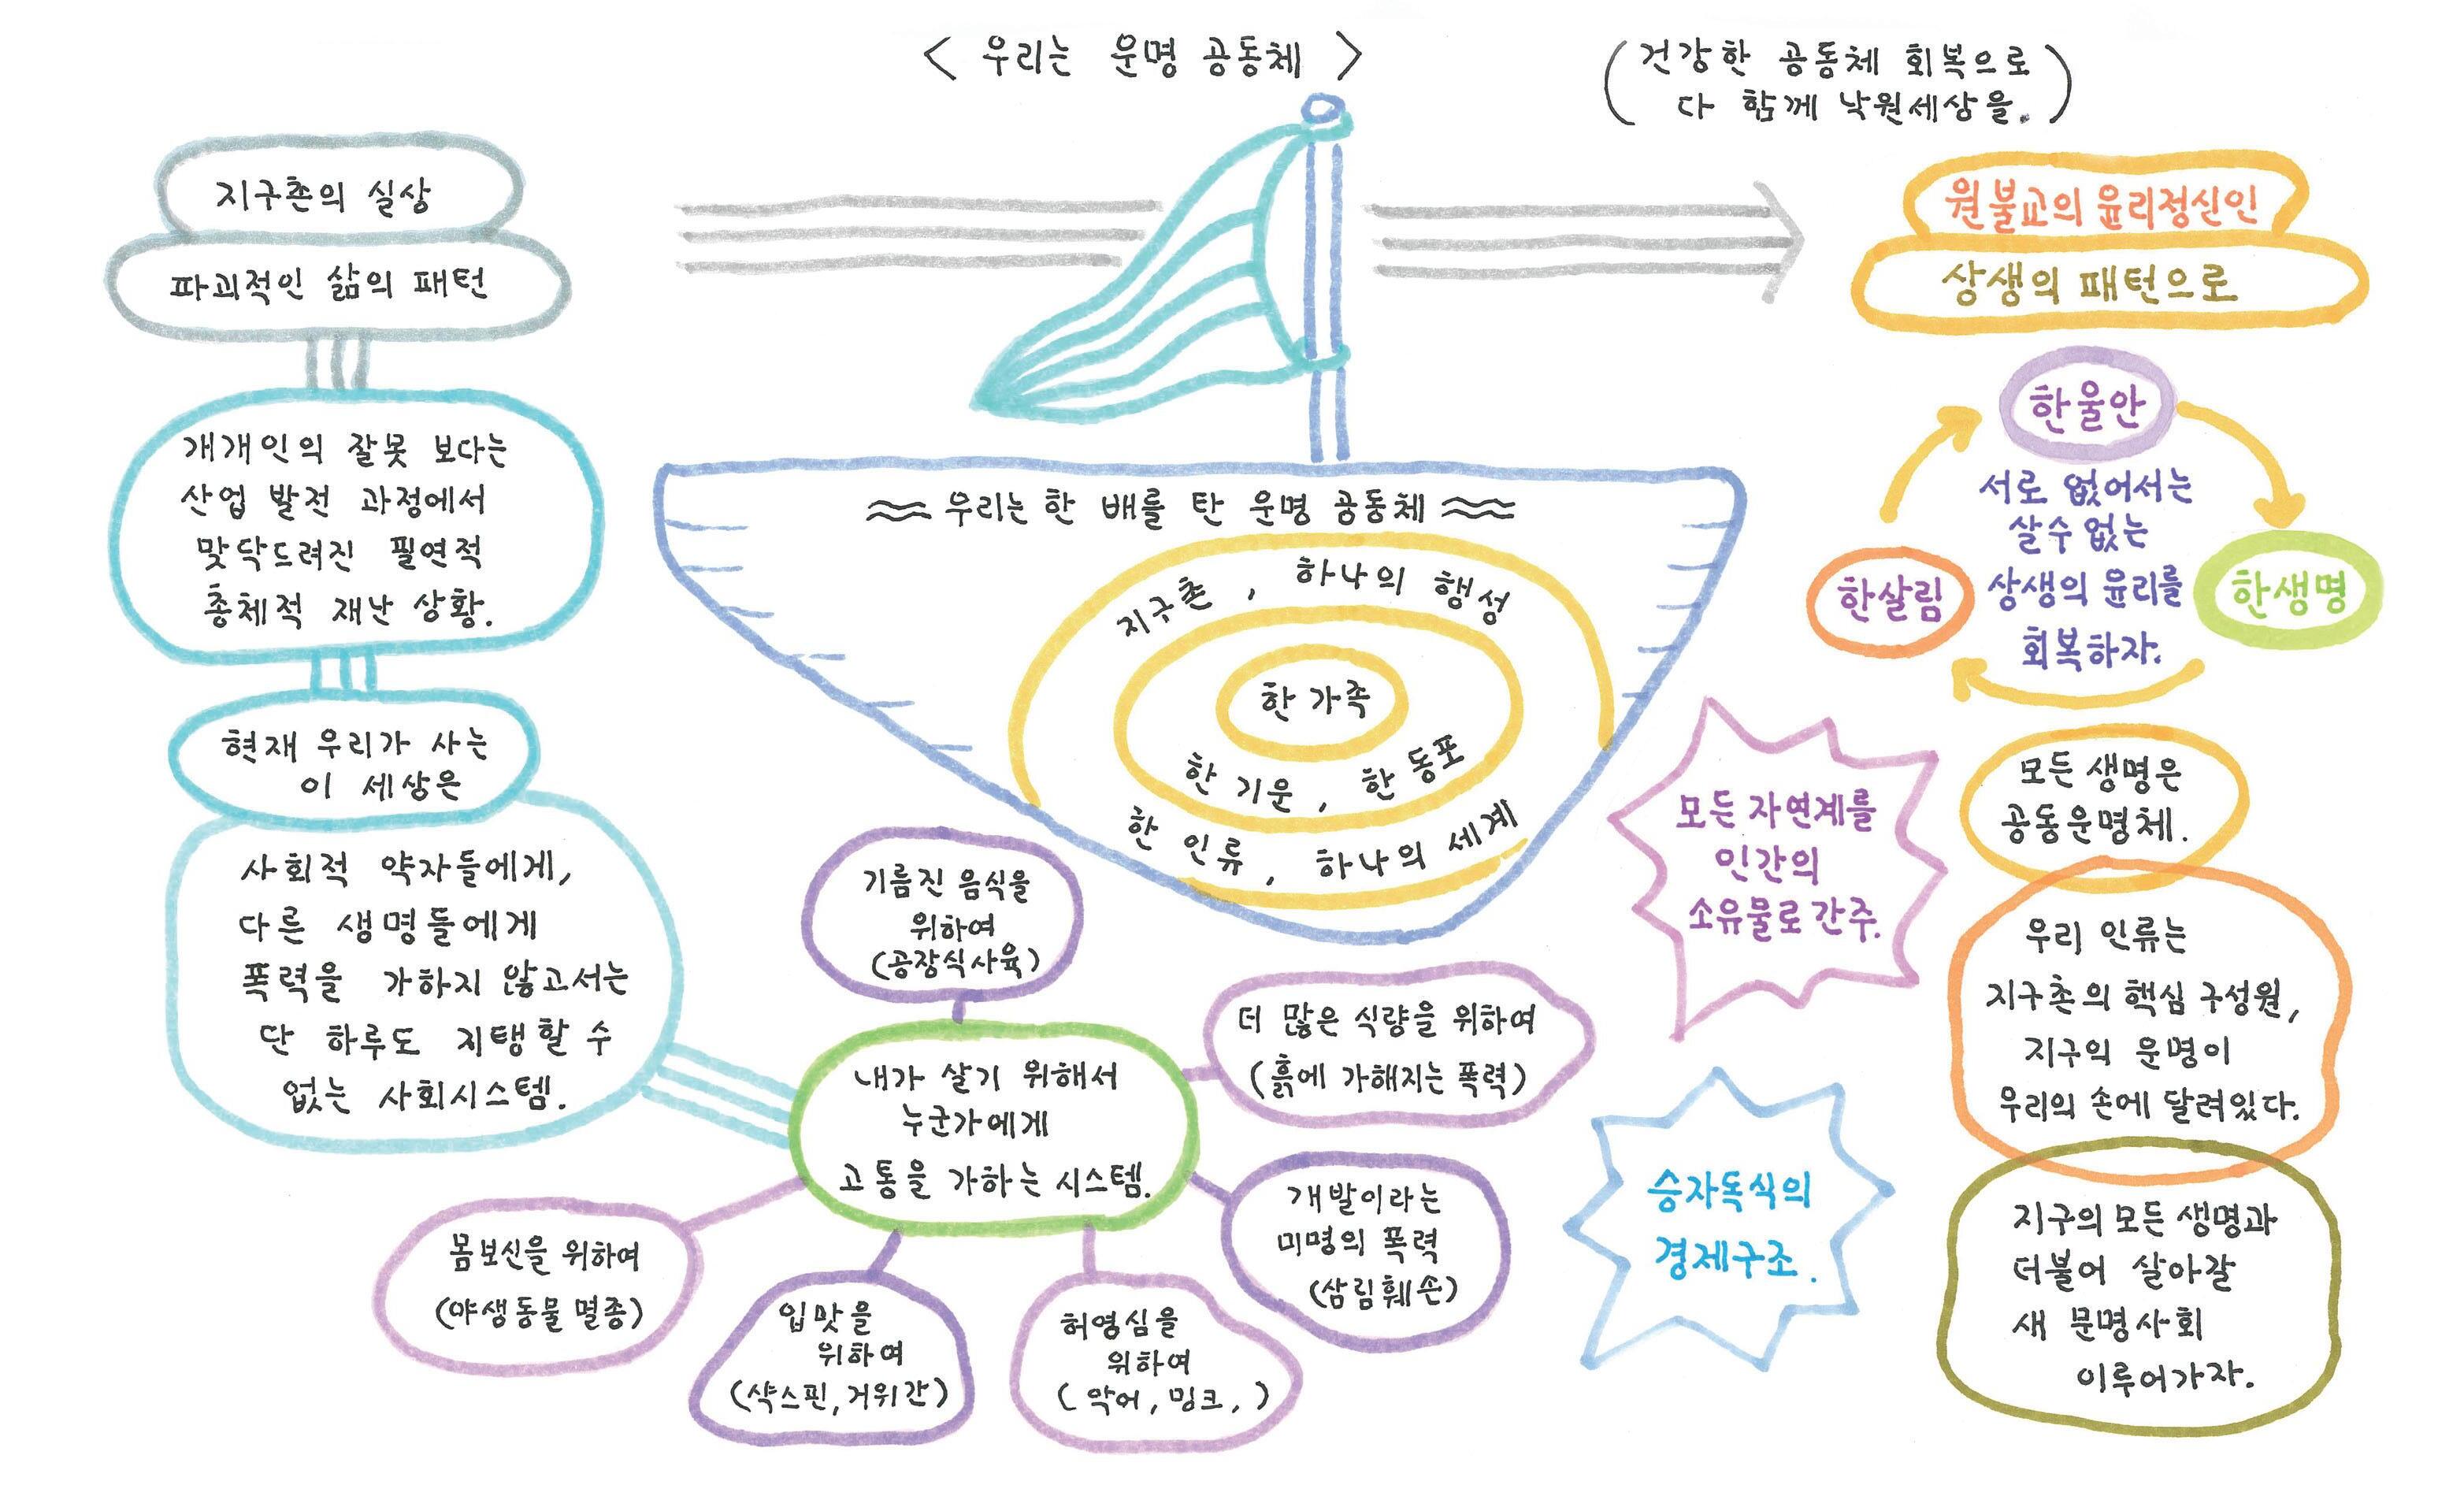 < 우리는 운명 공동체 >
(건강한 공동체 회복으로
다 함께 낙원세상을.)
지구촌의 실상
파괴적인 삶의 패턴
개개인의 잘못 보다는
산업 발전 과정에서
맞닥드려진 필연적
총체적 재난 상황.
현재 우리가 사는
이 세상은
사회적 약자들에게,
다른 생명들에게
폭력을 가하지 않고서는
단 하루도 지탱할 수
없는 사회시스템.
우리는 한 배를 탄 운명 공동체
지구촌, 하나의 행성
한 가족
한 기운, 한 동포
한 인류, 하나의 세계
기름진 음식을
위하여
(공장식사육)
더 많은 식량을 위하여
(흙에 가해지는 폭력)
내가 살기 위해서
누군가에게
고통을 가하는 시스템.
개발이라는
미명의 폭력
(삼림훼손)
몸보신을 위하여
(야생동물 멸종)
입맛을
위하여
(샥스핀, 거위간)
허영심을
위하여
(악어, 밍크, )
모든 자연계를
인간의
소유물로 간주.
승자독식의
경제구조.
원불교의 윤리정신인
상생의 패턴으로
한울안
서로 없어서는
살수 없는
상생의 윤리를
회복하자.
한살림
한생명
모든 생명은
공동운명체.
우리 인류는
지구촌의 핵심 구성원,
지구의 운명이
우리의 손에 달려있다.
지구의 모든 생명과
더불어 살아갈
새 문명사회
이루어가자.